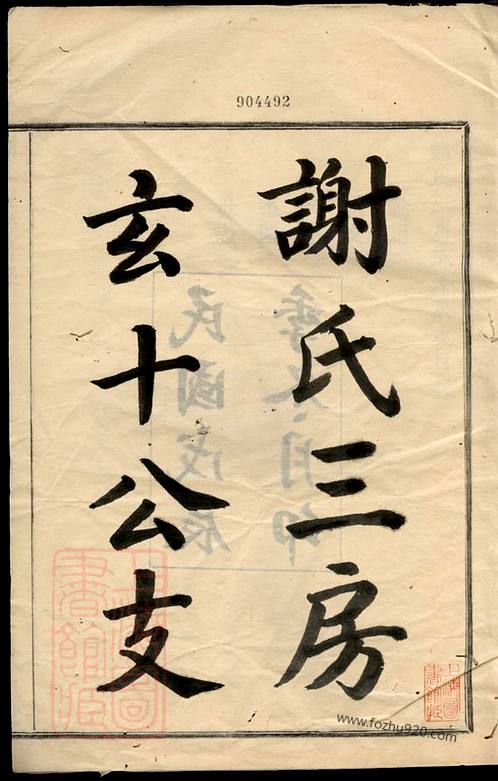 904492
謝氏三房
玄十公支
www.fozhu920.com